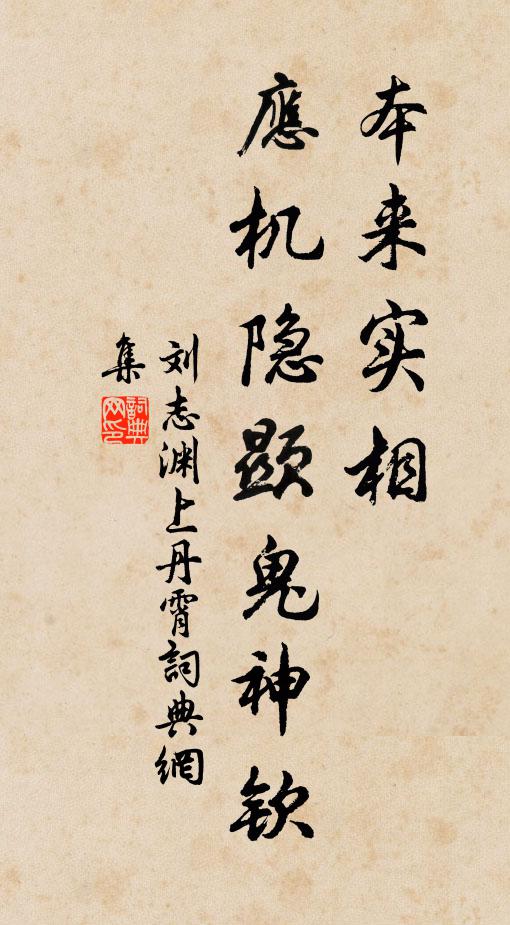 本来实相
應机隐顯鬼神欽
刘志渊上丹霄詞典網
集
詞典网印